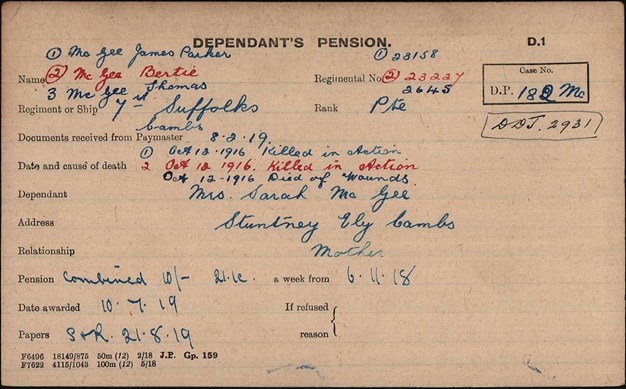 DEPENDANT'S PENSION. D.1
① Mc Gee James Parker ① 23158
Name ② Mc Gee Bertie Regimental No. ② 23227
3 Mc Gee Thomas 2645
Case No.
D.P. 182 Mc
Regiment or Ship 7th Suffolks Rank Pte
Cambs D.D.T. 2931
Documents received from Paymaster 8.2.19.
① Oct 12.1916 Killed in Action
Date and cause of death 2 Oct 12 1916. Killed in Action
Oct 12-1916 Died of Wounds.
Dependant Mrs. Sarah Mc Gee
Address Stuntney Ely Cambs
Relationship Mother
Pension Combined 10/- a week from 6.11.18
Date awarded 10.7.19 If refused
Papers S&R. 21.8.19 reason
F6496 18149/875 50m (12) 2/18 J.P. Gp. 159
F7622 4115/1043 100m (12) 5/18